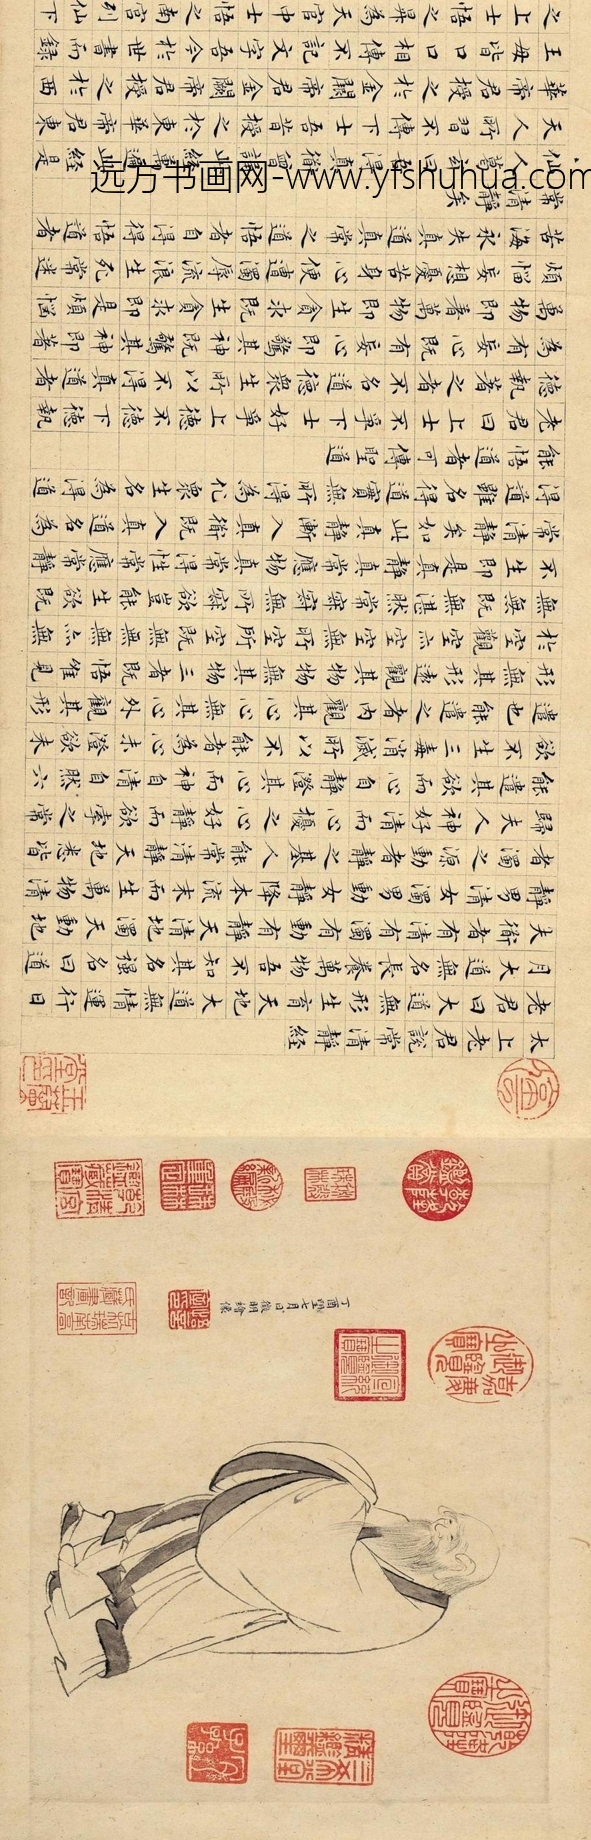 乾隆御覽之寶
三希堂精鑑璽
宜子孫
嘉慶御覽之寶
石渠寶笈
乾隆鑑賞
太上老君說常清靜經
老君曰大道無形生育天地大道無情運行日
月大道無名長養萬物吾不知其名强名曰道
夫衜者有清有濁有動有靜天清地濁天動地
靜男清女濁男動女靜降本流末而生萬物清
者濁之源動者靜之基人能常清靜天地悉皆
歸夫人神好清而心擾之心好靜而欲牽之常
能遣其欲而心自靜澄其心而神自清自然六
欲不生三毒消滅所以不能者為心未澄欲未
遣也能遣之者內觀其心心無其心外觀其形
形無其形遠觀其物物無其物三者既悟惟見
於空觀空亦空空無所空所空既無無無亦無
無無既無湛然常寂寂無所寂欲豈能生欲既
不生即是真靜真常應物真常得性常應常靜
常清靜矣如此真靜漸入真衜既入真道名為
得道雖名得道實無所得為化衆生名為得道
能悟道者可傳聖道
老君曰上士不爭下士好爭上德不德下德執
德執著之者不名道德衆生所以不得真道者
為有妄心既有妄心即驚其神既驚其神即著
萬物既著萬物即生貪求既生貪求即是煩惱
煩惱妄想憂苦身心便遭濁辱流浪生死常迷
苦海永失真道真常之道悟者自得得悟道者
常清靜矣
仙人葛玄曰得真衜曾誦此經萬遍此經是
天人所習不傳下士吾昔授之於東華帝君東
華帝君授之於金闕帝君金闕帝君授之於西
王母皆口口相傳不記文字吾今於世書而錄
之上士悟之昇為天官中士悟之南宮列仙下
远方书画网-www.yfshuhua.com